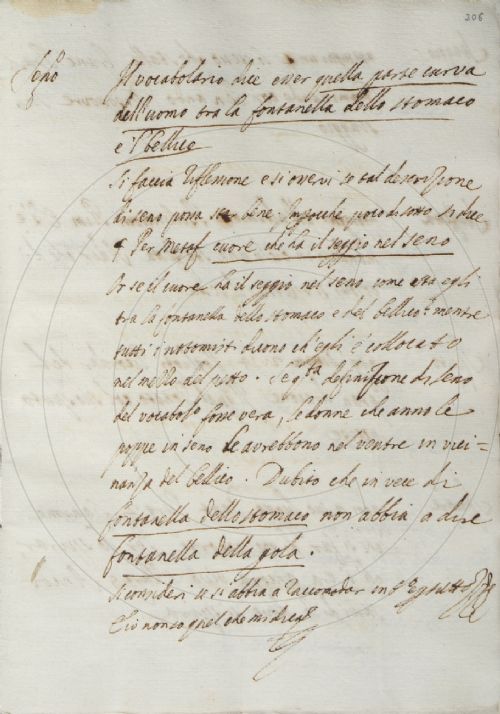 206
Seno
Il vocabolario dice esser quella parte curva
dell'uomo tra la fontanella dello stomaco
e il bellico
Si faccia riflessione e si osservi se tal descrizione
di seno possa star bene. Impoiche poco di sotto si dice
¶ Per Metaf cuore che ha il seggio nel seno
Or se il cuore ha il seggio nel seno come sta egli
tra la fontanella dello stomaco e del bellico? mentre
tutti i nottomisti dicono ch'egli è collocato
nel mezzo del petto. Se q.sta definizione di seno
del vocabol.o fosse vera, le donne che anno le
poppe in seno le avrebbono nel ventre in vici-
nanza del bellico. Dubito che in vece di
fontanella dello stomaco non abbia a dire
fontanella della gola.
Si consideri se si abbia a raccomodar in
Ch'io non so quel che mi dica